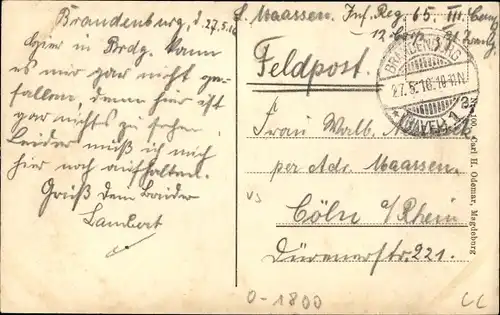 Brandenburg, d 27.5.16
Hier in Brdg. kann
es mir gar nicht ge-
fallen, denn hier ist
gar nichts zu sehen.
Leider muß ich mich
hier noch aufhalten.
Gruß Dein Bruder
Lambert
L. Maassen. Inf. Reg. 65. III.
12.
Feldpost.
BRANDENBURG
27.5.16.10-11N
(HAVEL) 1
Frau Walb.
per Adr. Maassen.
Cöln a/Rhein
Dürenerstr. 221.
Carl H. Odemar, Magdeburg
vs
0-1800
CC